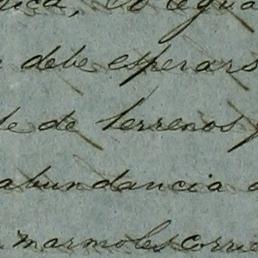 debe esperars
de terrenos
abundancia
marmoles corri